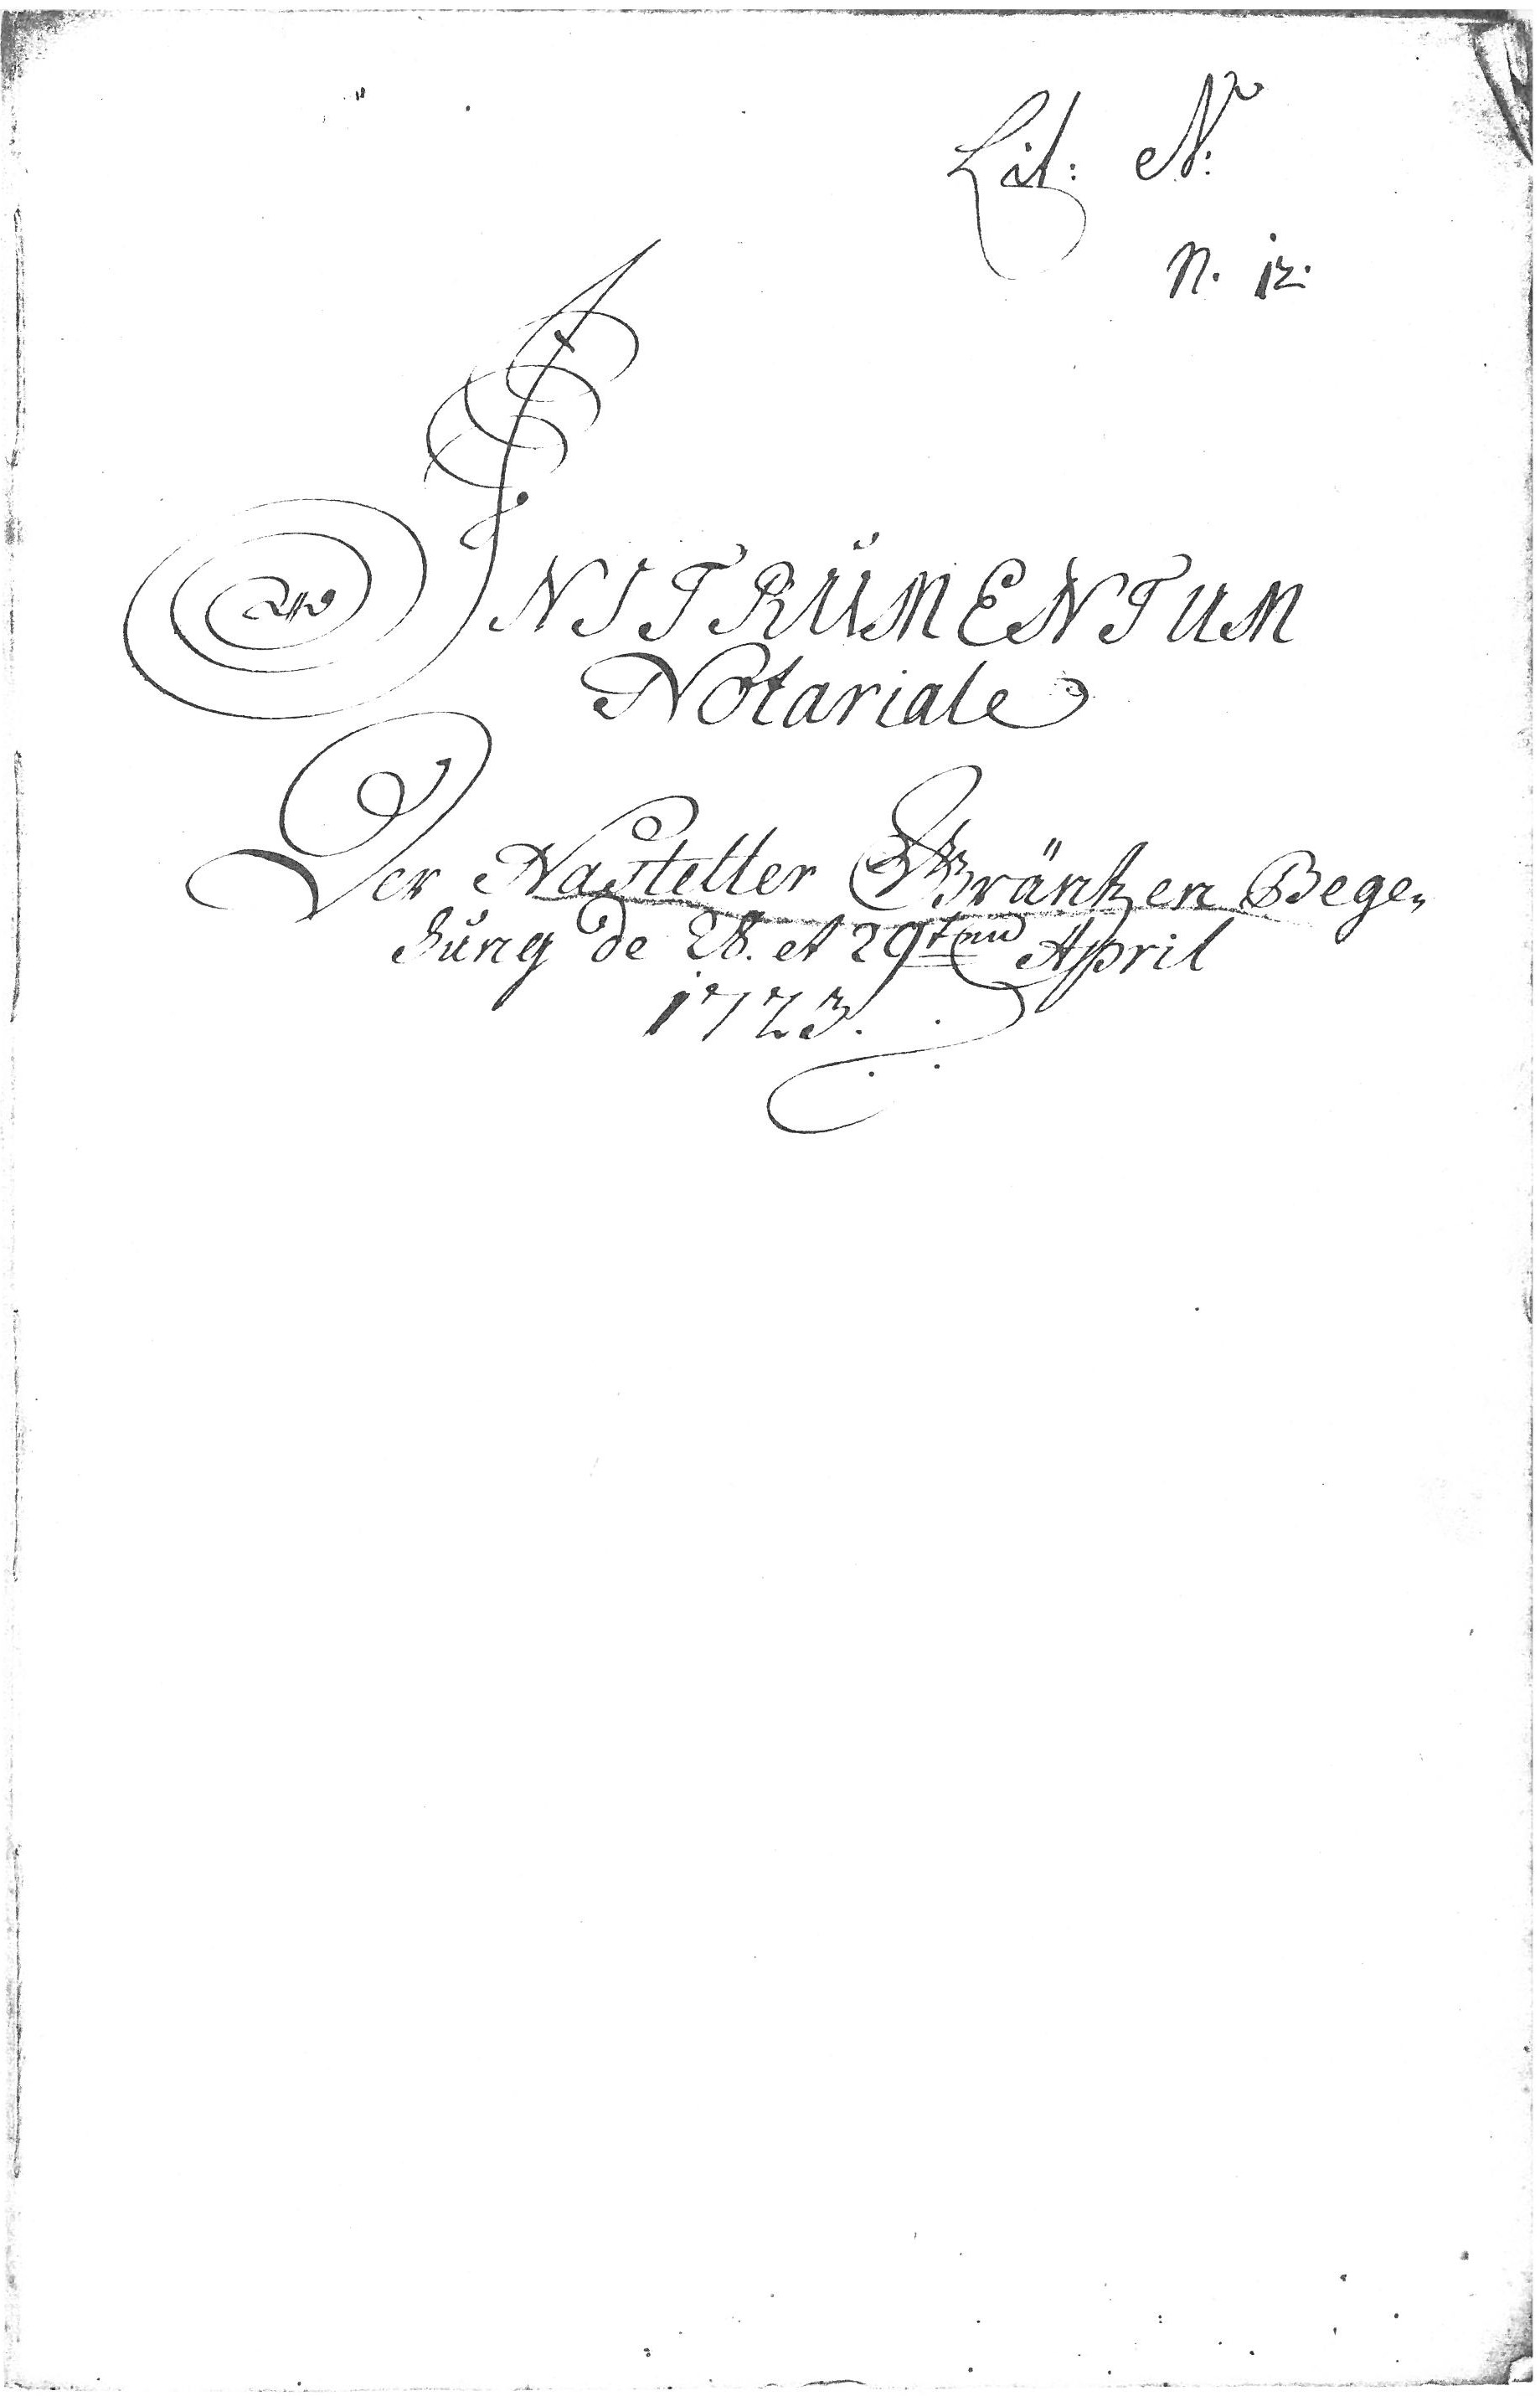 Lit: N:
n. 12.
INSTRUMENTUM
Notariale
Der Nastetter Gräntzen Bege„
hung de 28. et 29ten April
1723.